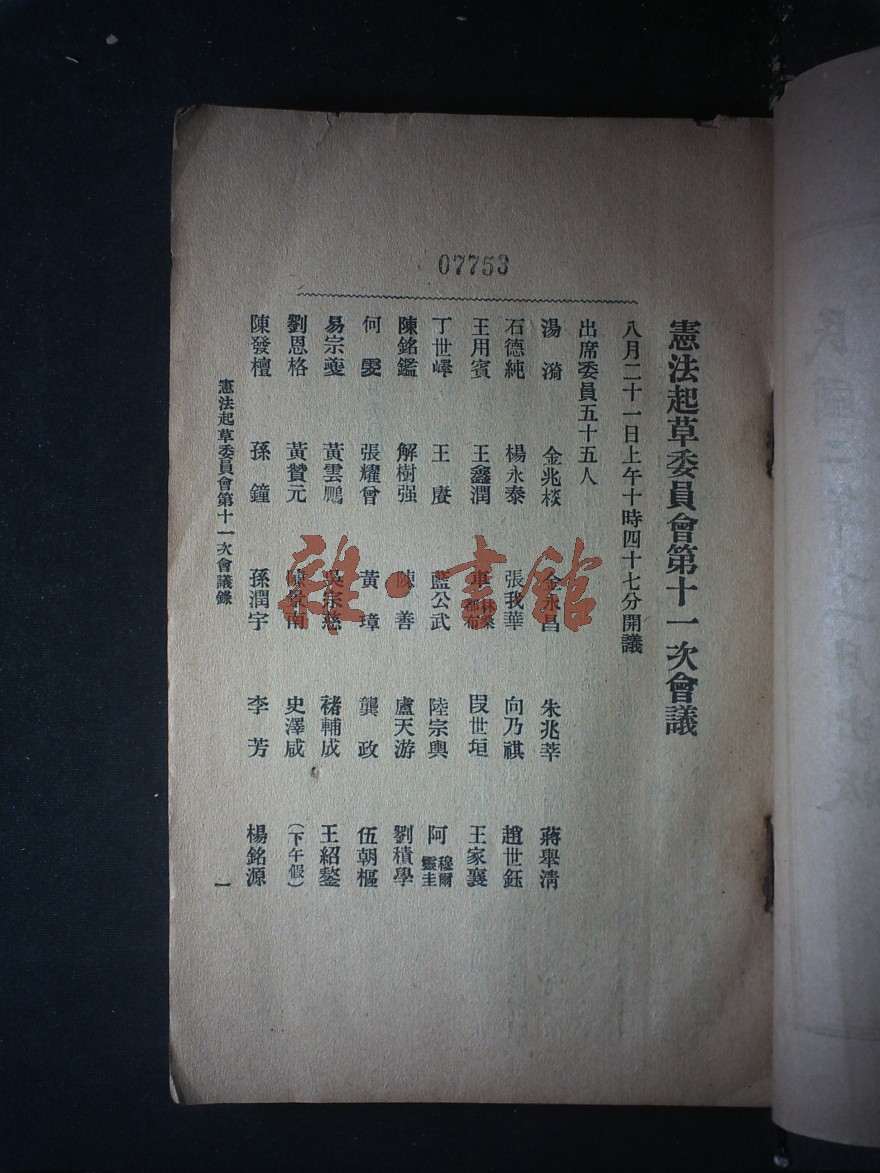 07753
憲法起草委員會第十一次會議
八月二十一日上午十時四十七分開議
出席委員五十五人
湯漪 金兆棪 金永昌 朱兆莘 蔣舉清
石德純 楊永泰 張我華 向乃祺 趙世鈺
王用賓 王鑫潤 車林桑都布 段世垣 王家襄
丁世嶧 王賡 藍公武 陸宗輿 阿穆爾靈圭
陳銘鑑 解樹强 陳善 盧天游 劉積學
何雯 張耀曾 黃璋 龔政 伍朝樞
易宗夔 黃雲鵬 吳宗慈 褚輔成 王紹鏊
劉恩格 黃贊元 陳景南 史澤咸(下午假)
陳發檀 孫鐘 孫潤宇 李芳 楊銘源
憲法起草委員會第十一次會議錄
一
雜·書館